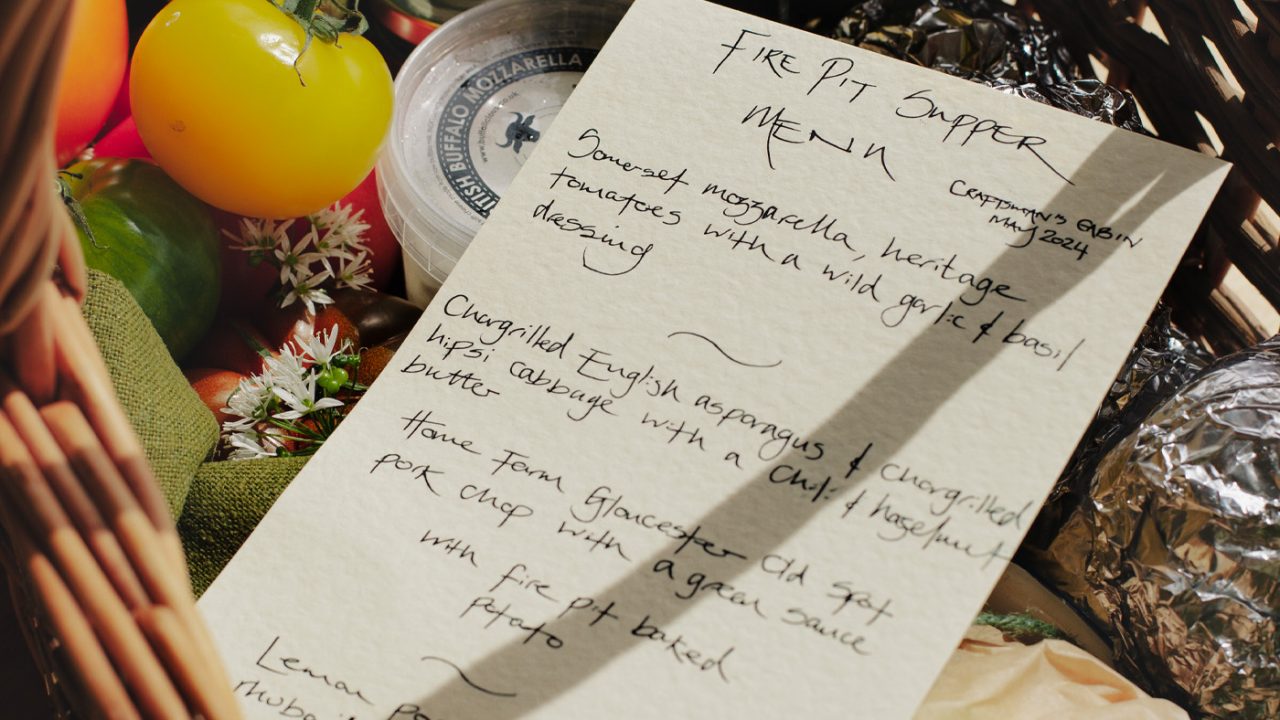 FIRE PIT SUPPER
MENU
CRAFTSMAN'S CABIN
MAY 2024
Somerset mozzarella, heritage
tomatoes with a wild garlic & basil
dressing
~
Chargrilled English asparagus & chargrilled
hipsi cabbage with a chili & hazelnut
butter
Home Farm Gloucester Old Spot
pork chop with a green sauce
with fire pit baked
potato
~
Lemon
BUFFALO MOZZARELLA